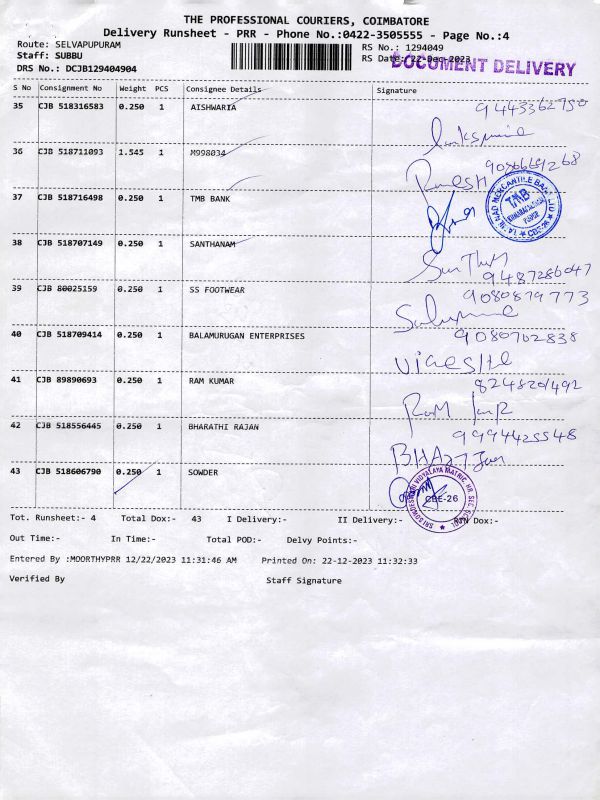 THE PROFESSIONAL COURIERS, COIMBATORE
Delivery Runsheet - PRR - Phone No.:0422-3505555 - Page No.:4
Route: SELVAPUPURAM
RS No.: 1294049
Staff: SUBBU
RS Date: 22-Dec-2023
DOCUMENT DELIVERY
DRS No.: DCJB129404904
S No Consignment No Weight PCS Consignee Details Signature
35 CJB 518316583 0.250 1 AISHWARIA
9443362750
36 CJB 518711093 1.545 1 M998034
37 CJB 518716498 0.250 1 TMB BANK
TMB
38 CJB 518707149 0.250 1 SANTHANAM
9487286047
39 CJB 80025159 0.250 1 SS FOOTWEAR
9080879773
40 CJB 518709414 0.250 1 BALAMURUGAN ENTERPRISES
9080702838
41 CJB 89890693 0.250 1 RAM KUMAR
42 CJB 518556445 0.250 1 BHARATHI RAJAN
9994425548
43 CJB 518606790 0.250 1 SOWDER
CBE-26
Tot. Runsheet:- 4 Total Dox:- 43 I Delivery:- II Delivery:- RTN Dox:-
Out Time:- In Time:- Total POD:- Delvy Points:-
Entered By :MOORTHYPRR 12/22/2023 11:31:46 AM Printed On: 22-12-2023 11:32:33
Verified By Staff Signature